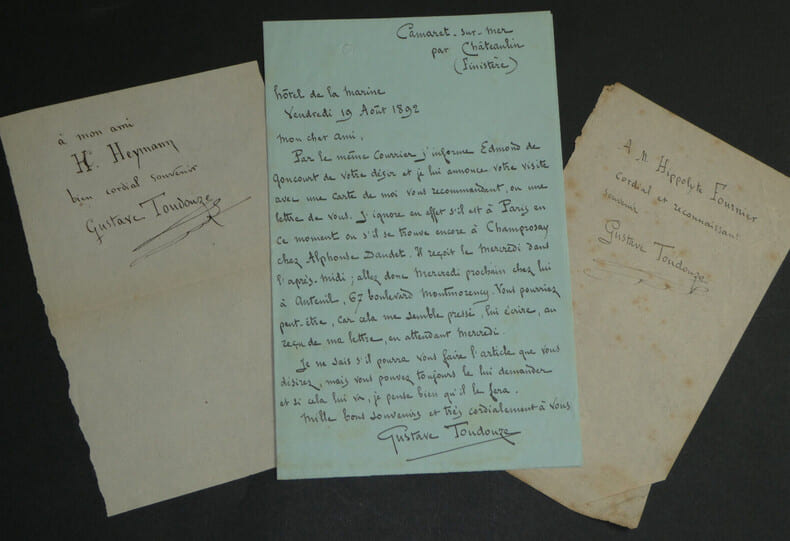 à mon ami
H. Heymann
bien cordial souvenir
Gustave Toudouze
Camaret-sur-mer
par Châteaulin
(Finistère)
hôtel de la marine
Vendredi 19 Août 1892
mon cher ami,
Par le même courrier j'informe Edmond de
Goncourt de votre désir et je lui annonce votre visite
avec une carte de moi vous recommandant, ou une
lettre de vous. J'ignore en effet s'il est à Paris en
ce moment ou s'il se trouve encore à Champrosay
chez Alphonse Daudet. Il reçoit le mercredi dans
l'après-midi ; allez donc mercredi prochain chez lui
à Auteuil, 67 boulevard Montmorency. Vous pourriez
peut-être, car cela me semble pressé, lui écrire, au
reçu de ma lettre, en attendant mercredi.
Je ne sais s'il pourra vous faire l'article que vous
désirez, mais vous pouvez toujours le lui demander
et si cela lui va, je pense bien qu'il le fera.
mille bons souvenirs et très cordialement à vous
Gustave Toudouze
A M. Hippolyte Fournier
cordial et reconnaissant
souvenir
Gustave Toudouze